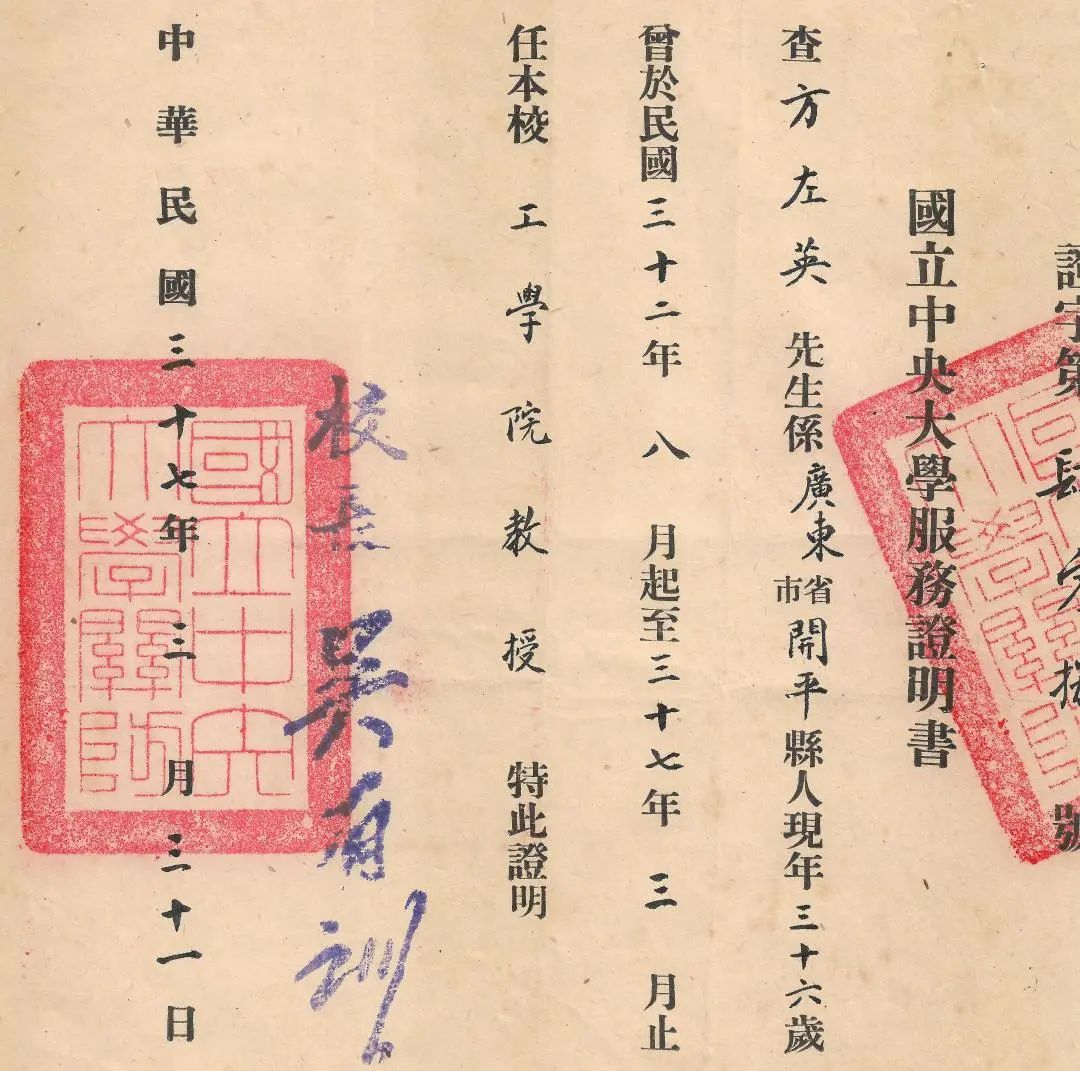 證字第肆號
國立中央大學服務證明書
查方左英先生係廣東省市開平縣人現年三十六歲
曾於民國三十二年八月起至三十七年三月止
任本校工學院教授特此證明
校長吳有訓
中華民國三十七年三月三十一日
國立中央大學關防